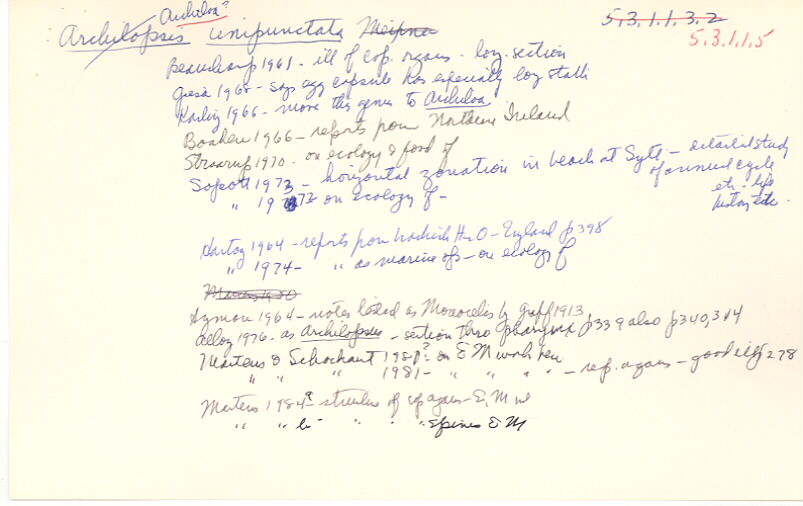 Archiloa?
Archilopsis unipunctata 5.3.1.1.3.2
5.3.1.1.5
Beauchamp 1961 - ill of cop. organs - long. section
Giesa 1968 - says egg capsule has especially long stalk
Karling 1966 - move this genus to Archiloa
Boaden 1966 - reports from Northern Ireland
Straarup 1970 - on ecology & food of
Sopott 1973 - horizontal zonation in beach at Sylt - detailed study of annual cycle etc - life history etc.
" 1972 on ecology of -
Hartog 1964 - reports from brackish H2O - England p 398
" 1974 - " as marine sp - on ecology of
Martens 1980
Hyman 1964 - notes listed as Monocelis by Graff 1913
1976 - as Archilopsis - section thro pharynx p 339 also p 340, 344
Martens & Schockaert 1981? on EM work here
" " 1981 - " " " " - rep. organs - good ill p 278
Martens 1984a structure of cop organs - E.M.
" " b " " " spines E M